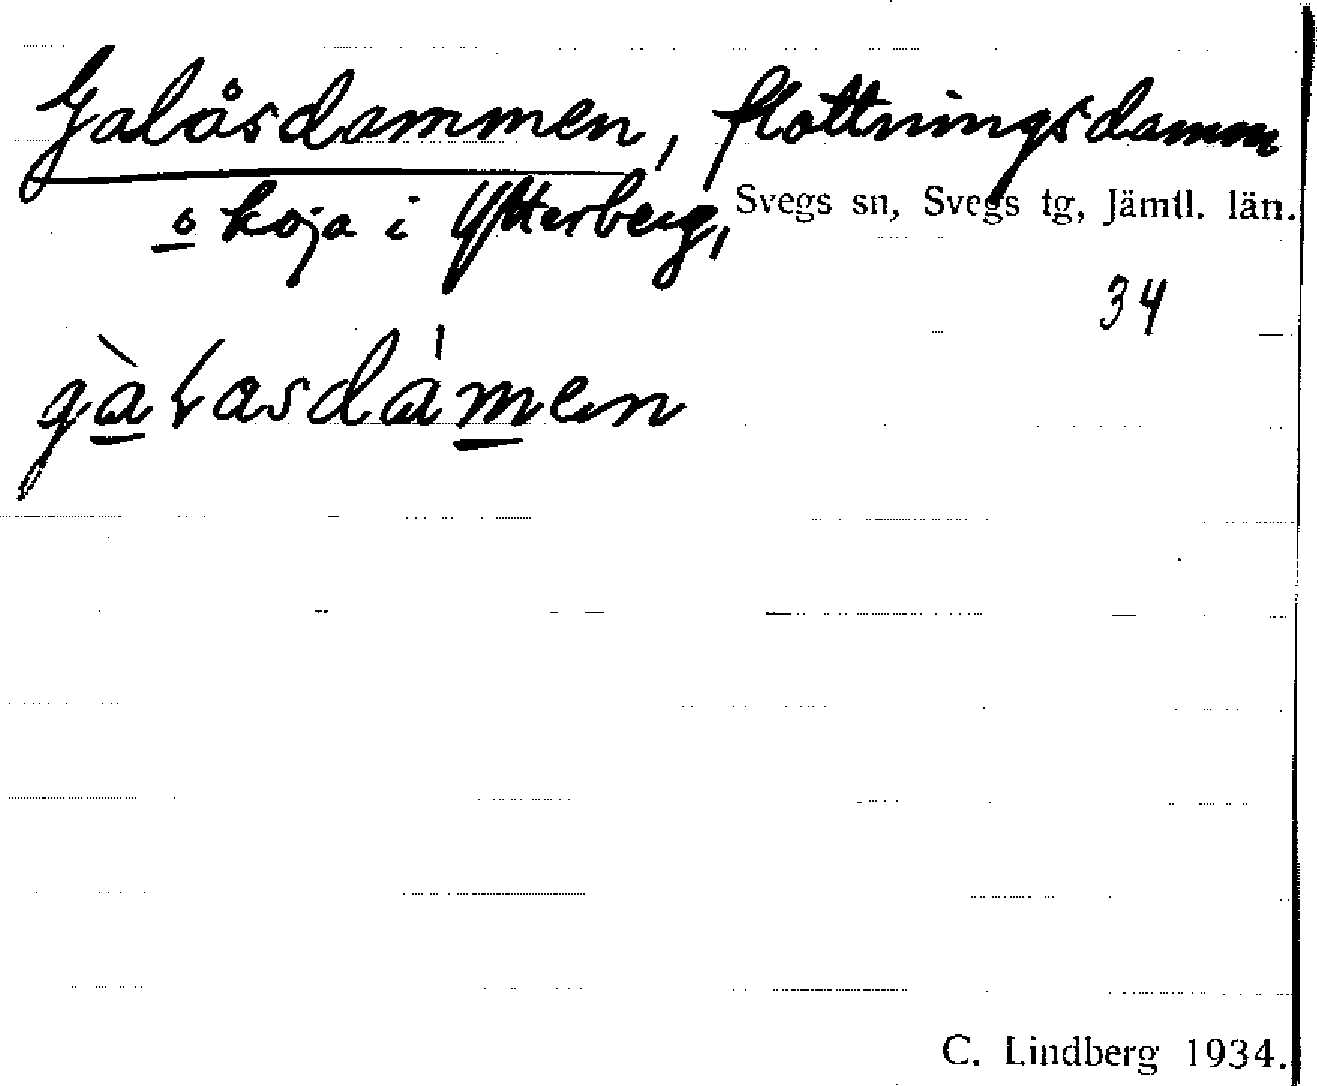 Galåsdammen, flottningsdamm
o koja i Ytterberg, Svegs sn, Svegs tg, Jämtl. län.
34
gàɫasdámen
C. Lindberg 1934.